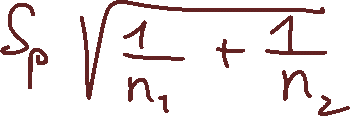 $S_p \sqrt{\frac{1}{n_1} + \frac{1}{n_2}}$